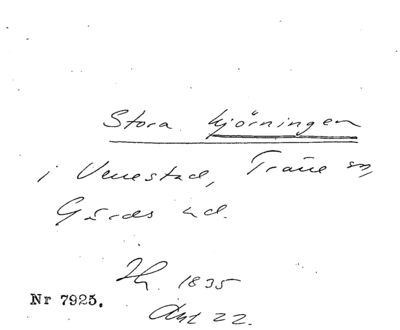 Stora Kjörningen
i Venestad, Träne sn,
Gärds hd.
Ih. 1835
Akt 22.
Nr 7925.